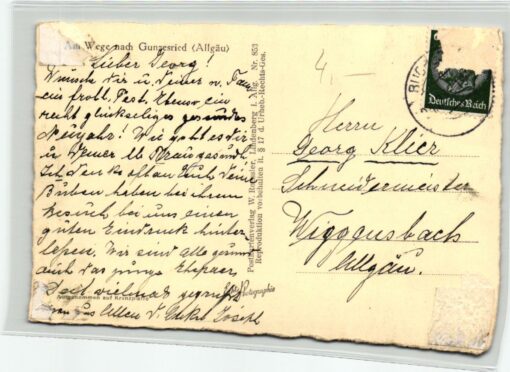 Am Wege nach Gunzesried (Allgäu)
Lieber Georg!
Wünsche Dir u. Deiner w. Fam.
ein frohes Fest. Ebenso ein
recht glückseliges gesundes
Neujahr! Wie geht es Dir
u. Deiner lb.
Ich denke oft an Euch. Deine
Buben haben bei ihrem
Besuch bei uns einen
guten Eindruck hinter
lassen. Wir sind alle gesund
auch das junge Ehepaar.
Seit vielmals gegrüßt
von uns Allen
Aufgenommen auf
Echte Photographie
Reproduktion vorbehalten lt. § 17 d. Urheb.-Rechts-Ges.
Nr. 853
4.-
Deutsches Reich
Herrn
Georg Klier
Schneidermeister
Wiggensbach
Allgäu.